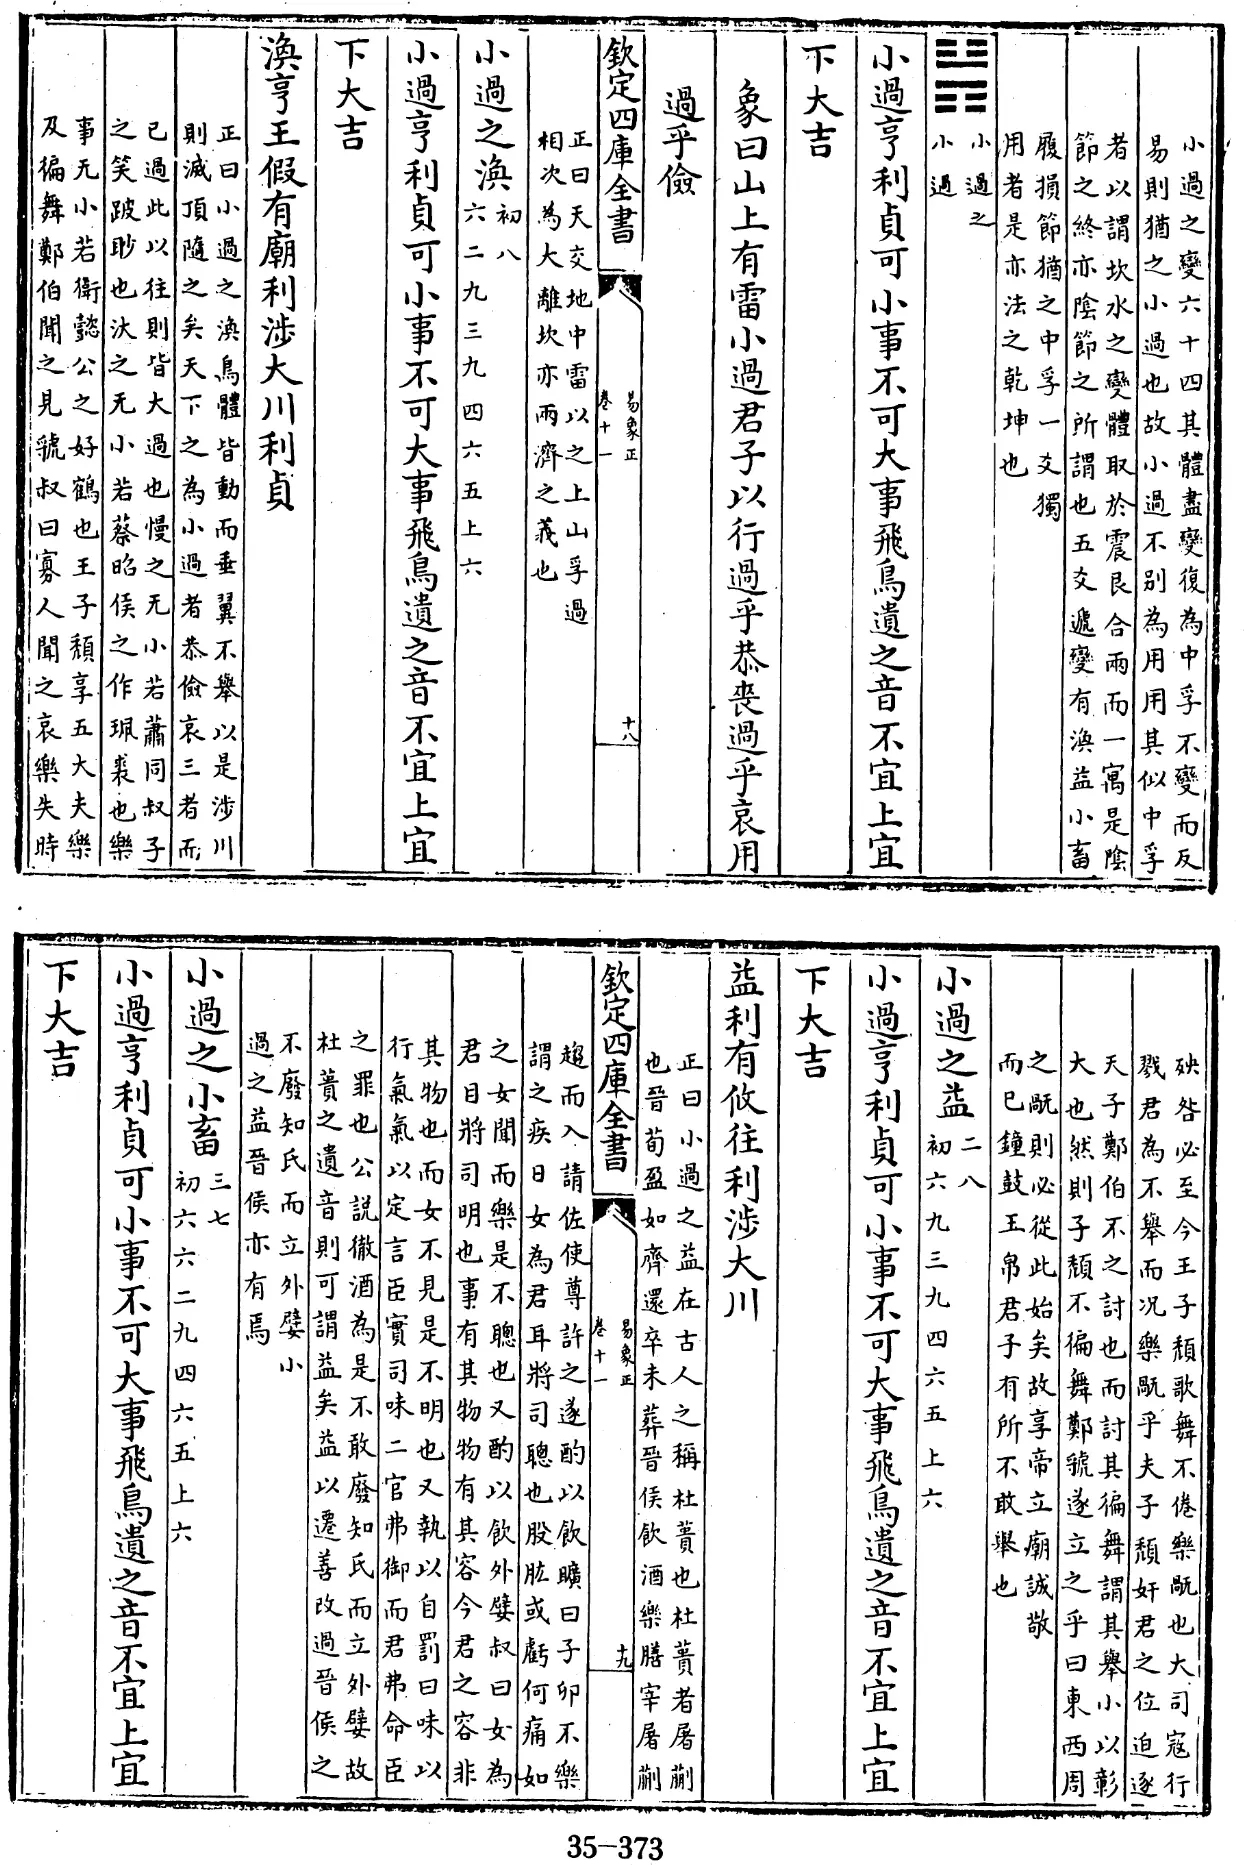 小過之變六十四其體盡變復為中孚不變而反
易則猶之小過也故小過不別為用用其似中孚
者以謂坎水之變體取於震艮合兩而一寓是陰
節之終亦陰節之所謂也五爻遞變有渙益小畜
履損節猶之中孚一爻獨
用者是亦法之乾坤也
小過之
小過
小過亨利貞可小事不可大事飛鳥遺之音不宜上宜
下大吉
象曰山上有雷小過君子以行過乎恭喪過乎哀用
過乎儉
正曰天交地中雷以之上山孚過
相次為大離坎亦兩濟之義也
欽定四庫全書
易象正
卷十一
十八
小過之渙
初八
六二九三九四六五上六
小過亨利貞可小事不可大事飛鳥遺之音不宜上宜
下大吉
渙亨王假有廟利涉大川利貞
正曰小過之渙鳥體皆動而垂翼不舉以是涉川
則滅頂隨之矣天下之為小過者恭儉哀三者而
已過此以往則皆大過也慢之无小若蕭同叔子
之笑跛眇也汏之无小若蔡昭侯之作珮裘也樂
事无小若衛懿公之好鶴也王子頹享五大夫樂
及徧舞鄭伯聞之見虢叔曰寡人聞之哀樂失時
殃咎必至今王子頹歌舞不倦樂甂也大司寇行
戮君為不舉而況樂甂乎夫子頹奸君之位迫逐
天子鄭伯不之討也而討其徧舞謂其舉小以彰
大也然則子頹不徧舞鄭虢遂立之乎曰東西周
之甂則必從此始矣故享帝立廟誠敬
而已鐘鼓玉帛君子有所不敢舉也
小過之益
二八
初六九三九四六五上六
小過亨利貞可小事不可大事飛鳥遺之音不宜上宜
下大吉
益利有攸往利涉大川
正曰小過之益在古人之稱杜蕢也杜蕢者屠蒯
也晉荀盈如齊還卒未葬晉侯飲酒樂膳宰屠蒯
欽定四庫全書
易象正
卷十一
十九
趨而入請佐使尊許之遂酌以飲曠曰子卯不樂
謂之疾日女為君耳將司聰也股肱或虧何痛如
之女聞而樂是不聰也又酌以飲外嬖叔曰女為
君目將司明也事有其物物有其容今君之容非
其物也而女不見是不明也又執以自罰曰味以
行氣氣以定言臣實司味二官弗御而君弗命臣
之罪也公説徹酒為是不敢廢知氏而立外嬖故
杜蕢之遺音則可謂益矣益以遷善改過晉侯之
不廢知氏而立外嬖小
過之益晉侯亦有焉
小過之小畜
三七
初六六二九四六五上六
小過亨利貞可小事不可大事飛鳥遺之音不宜上宜
下大吉
35-373